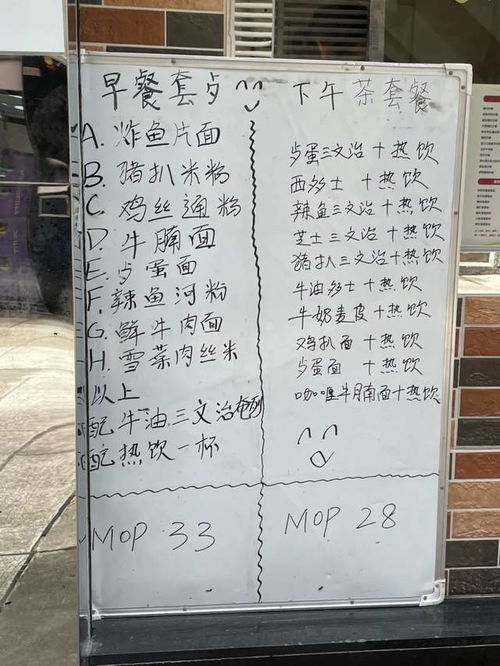 早餐套歺
A. 炸鱼片面
B. 猪扒米粉
C. 鸡丝通粉
D. 牛腩面
E. 歺蛋面
F. 辣鱼河粉
G. 鲜牛肉面
H. 雪菜肉丝米
以上
配.牛油三文治
配.热饮一杯
MOP 33
下午茶套餐
歺蛋三文治+热饮
西多士+热饮
辣鱼三文治+热饮
芝士三文治+热饮
猪扒三文治+热饮
牛油多士+热饮
牛奶麦皮+热饮
鸡扒面+热饮
歺蛋面+热饮
咖喱牛腩面+热饮
MOP 28